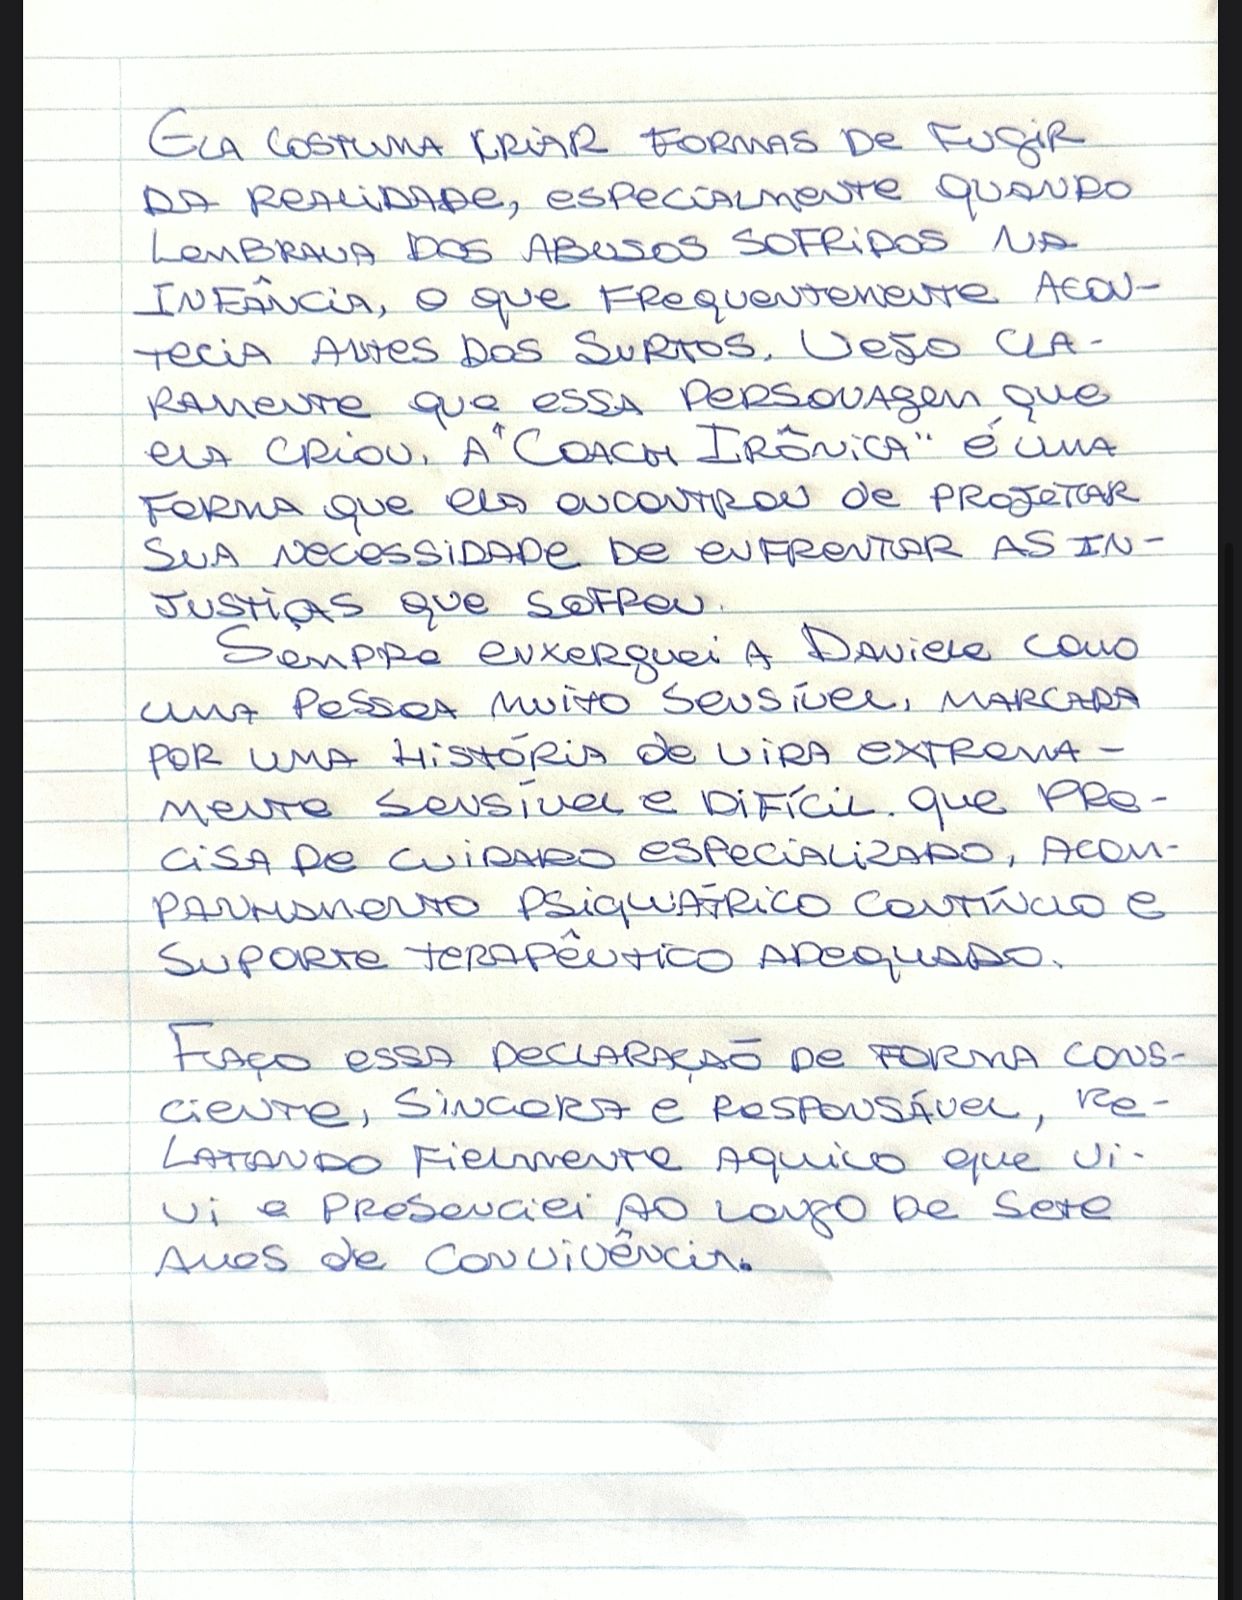 Ela costuma criar formas de fugir
da realidade, especialmente quando
lembrava dos abusos sofridos na
infância, o que frequentemente acon-
tecia antes dos surtos. Vejo cla-
ramente que essa personagem que
ela criou. A "Coach Irônica" é uma
forma que ela encontrou de projetar
sua necessidade de enfrentar as in-
justiças que sofreu.
Sempre enxerguei a Daniele como
uma pessoa muito sensível, marcada
por uma história de vida extrema-
mente sensível e difícil. que pre-
cisa de cuidado especializado, acom-
panhamento psiquiátrico contínuo e
suporte terapêutico adequado.
Faço essa declaração de forma cons-
ciente, sincera e responsável, re-
latando fielmente aquilo que vi-
vi e presenciei ao longo de sete
anos de convivência.